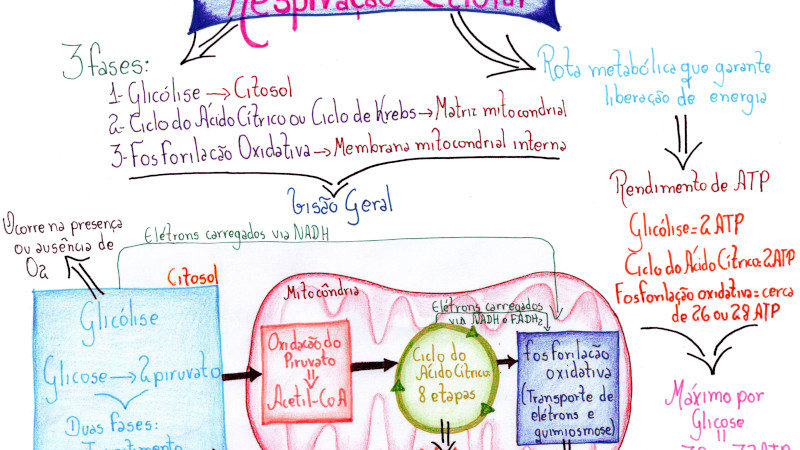 Respiração Celular
3 fases:
1- Glicólise → Citosol
2- Ciclo do Ácido Cítrico ou Ciclo de Krebs → Matriz mitocondrial
3- Fosforilação Oxidativa → Membrana mitocondrial interna
Visão Geral
Rota metabólica que garante
liberação de energia
Rendimento de ATP
Glicólise = 2 ATP
Ciclo do Ácido Cítrico: 2 ATP
Fosforilação oxidativa = cerca
de 26 ou 28 ATP
Máximo por
Glicose
=
Ocorre na presença
ou ausência de
O2
Elétrons carregados via NADH
Citosol
Glicólise
Glicose → 2 piruvato
Duas fases:
Mitocôndria
Oxidação do
Piruvato
Acetil-CoA
Elétrons carregados
via NADH e FADH2
Ciclo do
Ácido Cítrico:
8 etapas
fosforilação
oxidativa
(Transporte de
elétrons e
quimiosmose)